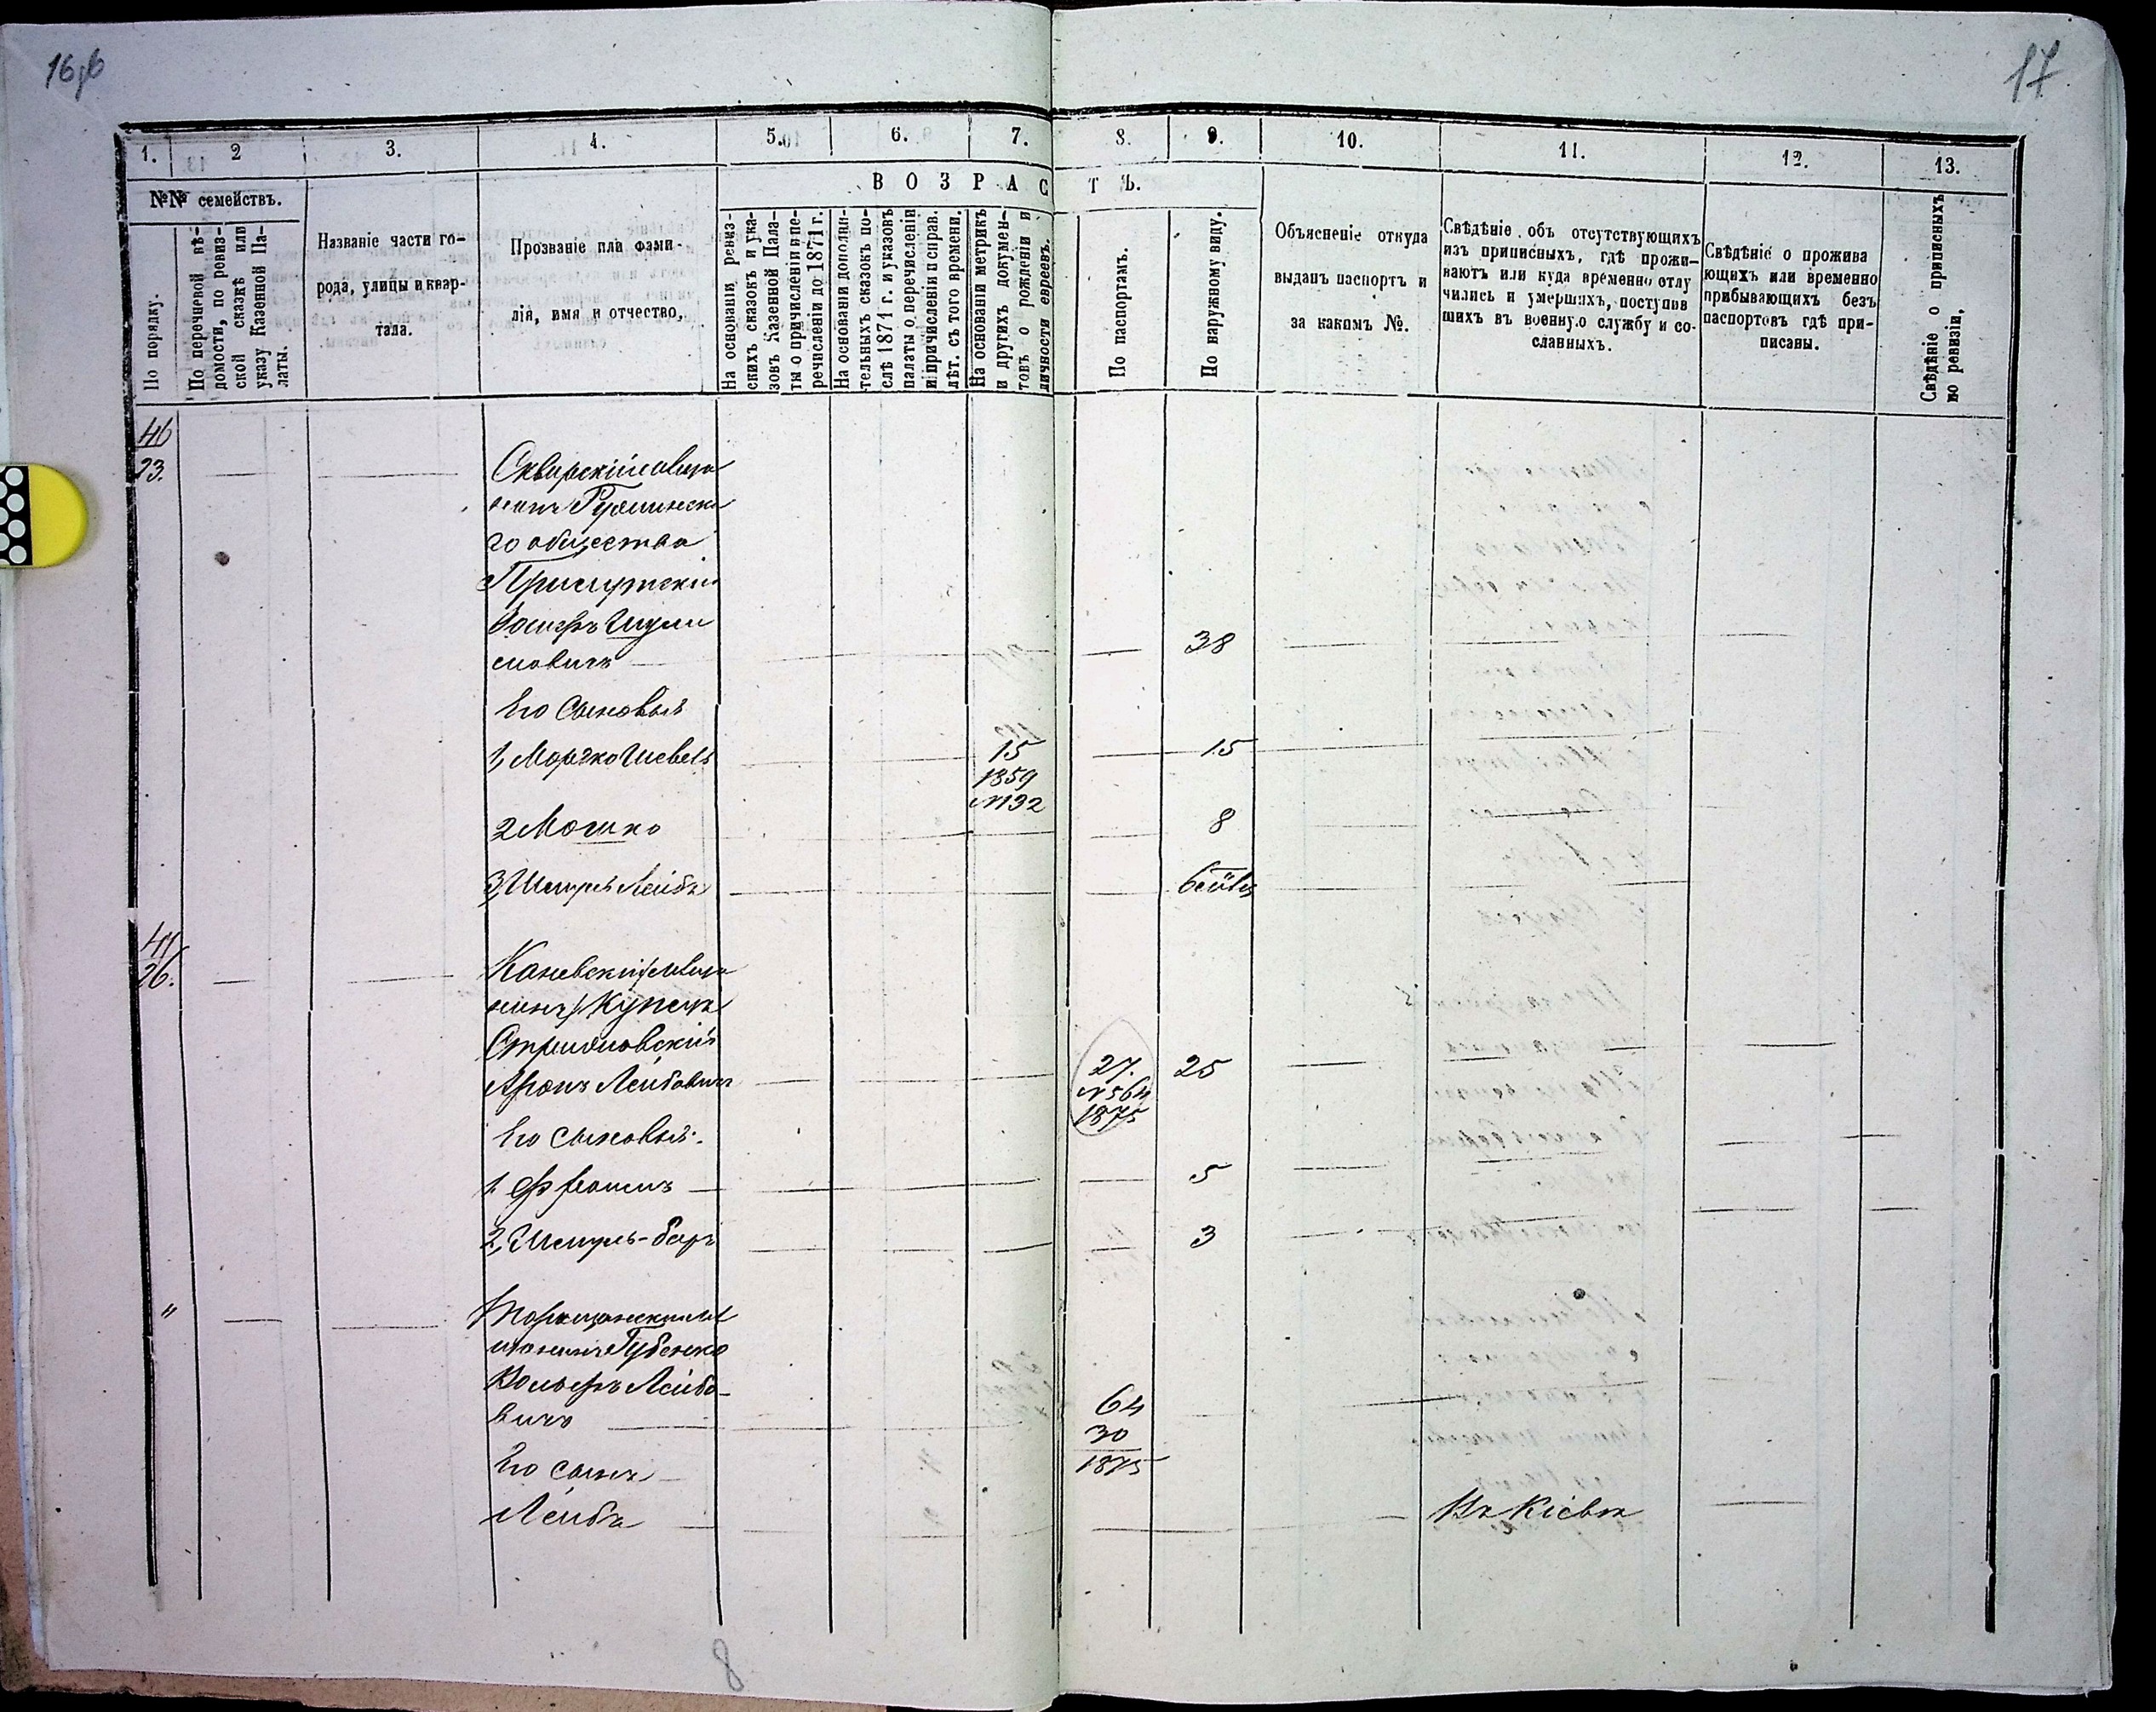 16 об
17
1.
2
3.
4.
5.
6.
7.
8.
9.
10.
11.
12.
13.
№№ семействъ.
По порядку.
По перечневой вѣ-
домости, по ревиз-
ской сказкѣ или
указу Казенной Па-
латы.
Названіе части го-
рода, улицы и квар-
тала.
Прозваніе или фами-
лія, имя и отчество,
ВОЗРАСТЪ.
На основаніи ревиз-
скихъ сказокъ и ука-
зовъ Казенной Пала-
ты о причисленіи и пе-
речисленіи до 1871 г.
На основаніи дополни-
тельныхъ сказокъ по-
слѣ 1871 г. и указовъ
палаты о перечисленіи
и причисленіи и справ.
лѣт. съ того времени.
На основаніи метрикъ
и другихъ докумен-
товъ о рожденіи и
личности евреевъ.
По паспортамъ.
По наружному виду.
Объясненіе откуда
выданъ паспортъ и
за какимъ №.
Свѣдѣніе объ отсутствующихъ
изъ приписныхъ, гдѣ прожи-
ваютъ или куда временно отлу
чились и умершихъ, поступив
шихъ въ военную службу и со-
сланныхъ.
Свѣдѣніе о прожива
ющихъ или временно
прибывающихъ безъ
паспортовъ гдѣ при-
писаны.
Свѣдѣніе о приписныхъ
по ревизіи,
46
23.
Сквирскій мѣща
нинъ Ружинска
го общества
Прилуцкій
38
смовичъ
Его сыновья
1, Мордко Шевель 15 15
1859
№ 132
2 Мошко 8
3, Шмуль Лейба
26.
Каневскій мѣща
нинъ Купецъ
Аронъ Лейбовичъ 27. 25
№ 564
1875
Его сыновья:
1. Эфроимъ 5
2, Шмуль-Беръ 3
"
Таращанскій мѣ
щанинъ Губенко
Вольфъ Лейбо-
вичъ 64
30
1875
Его сынъ
Лейба Въ Кіевѣ
8